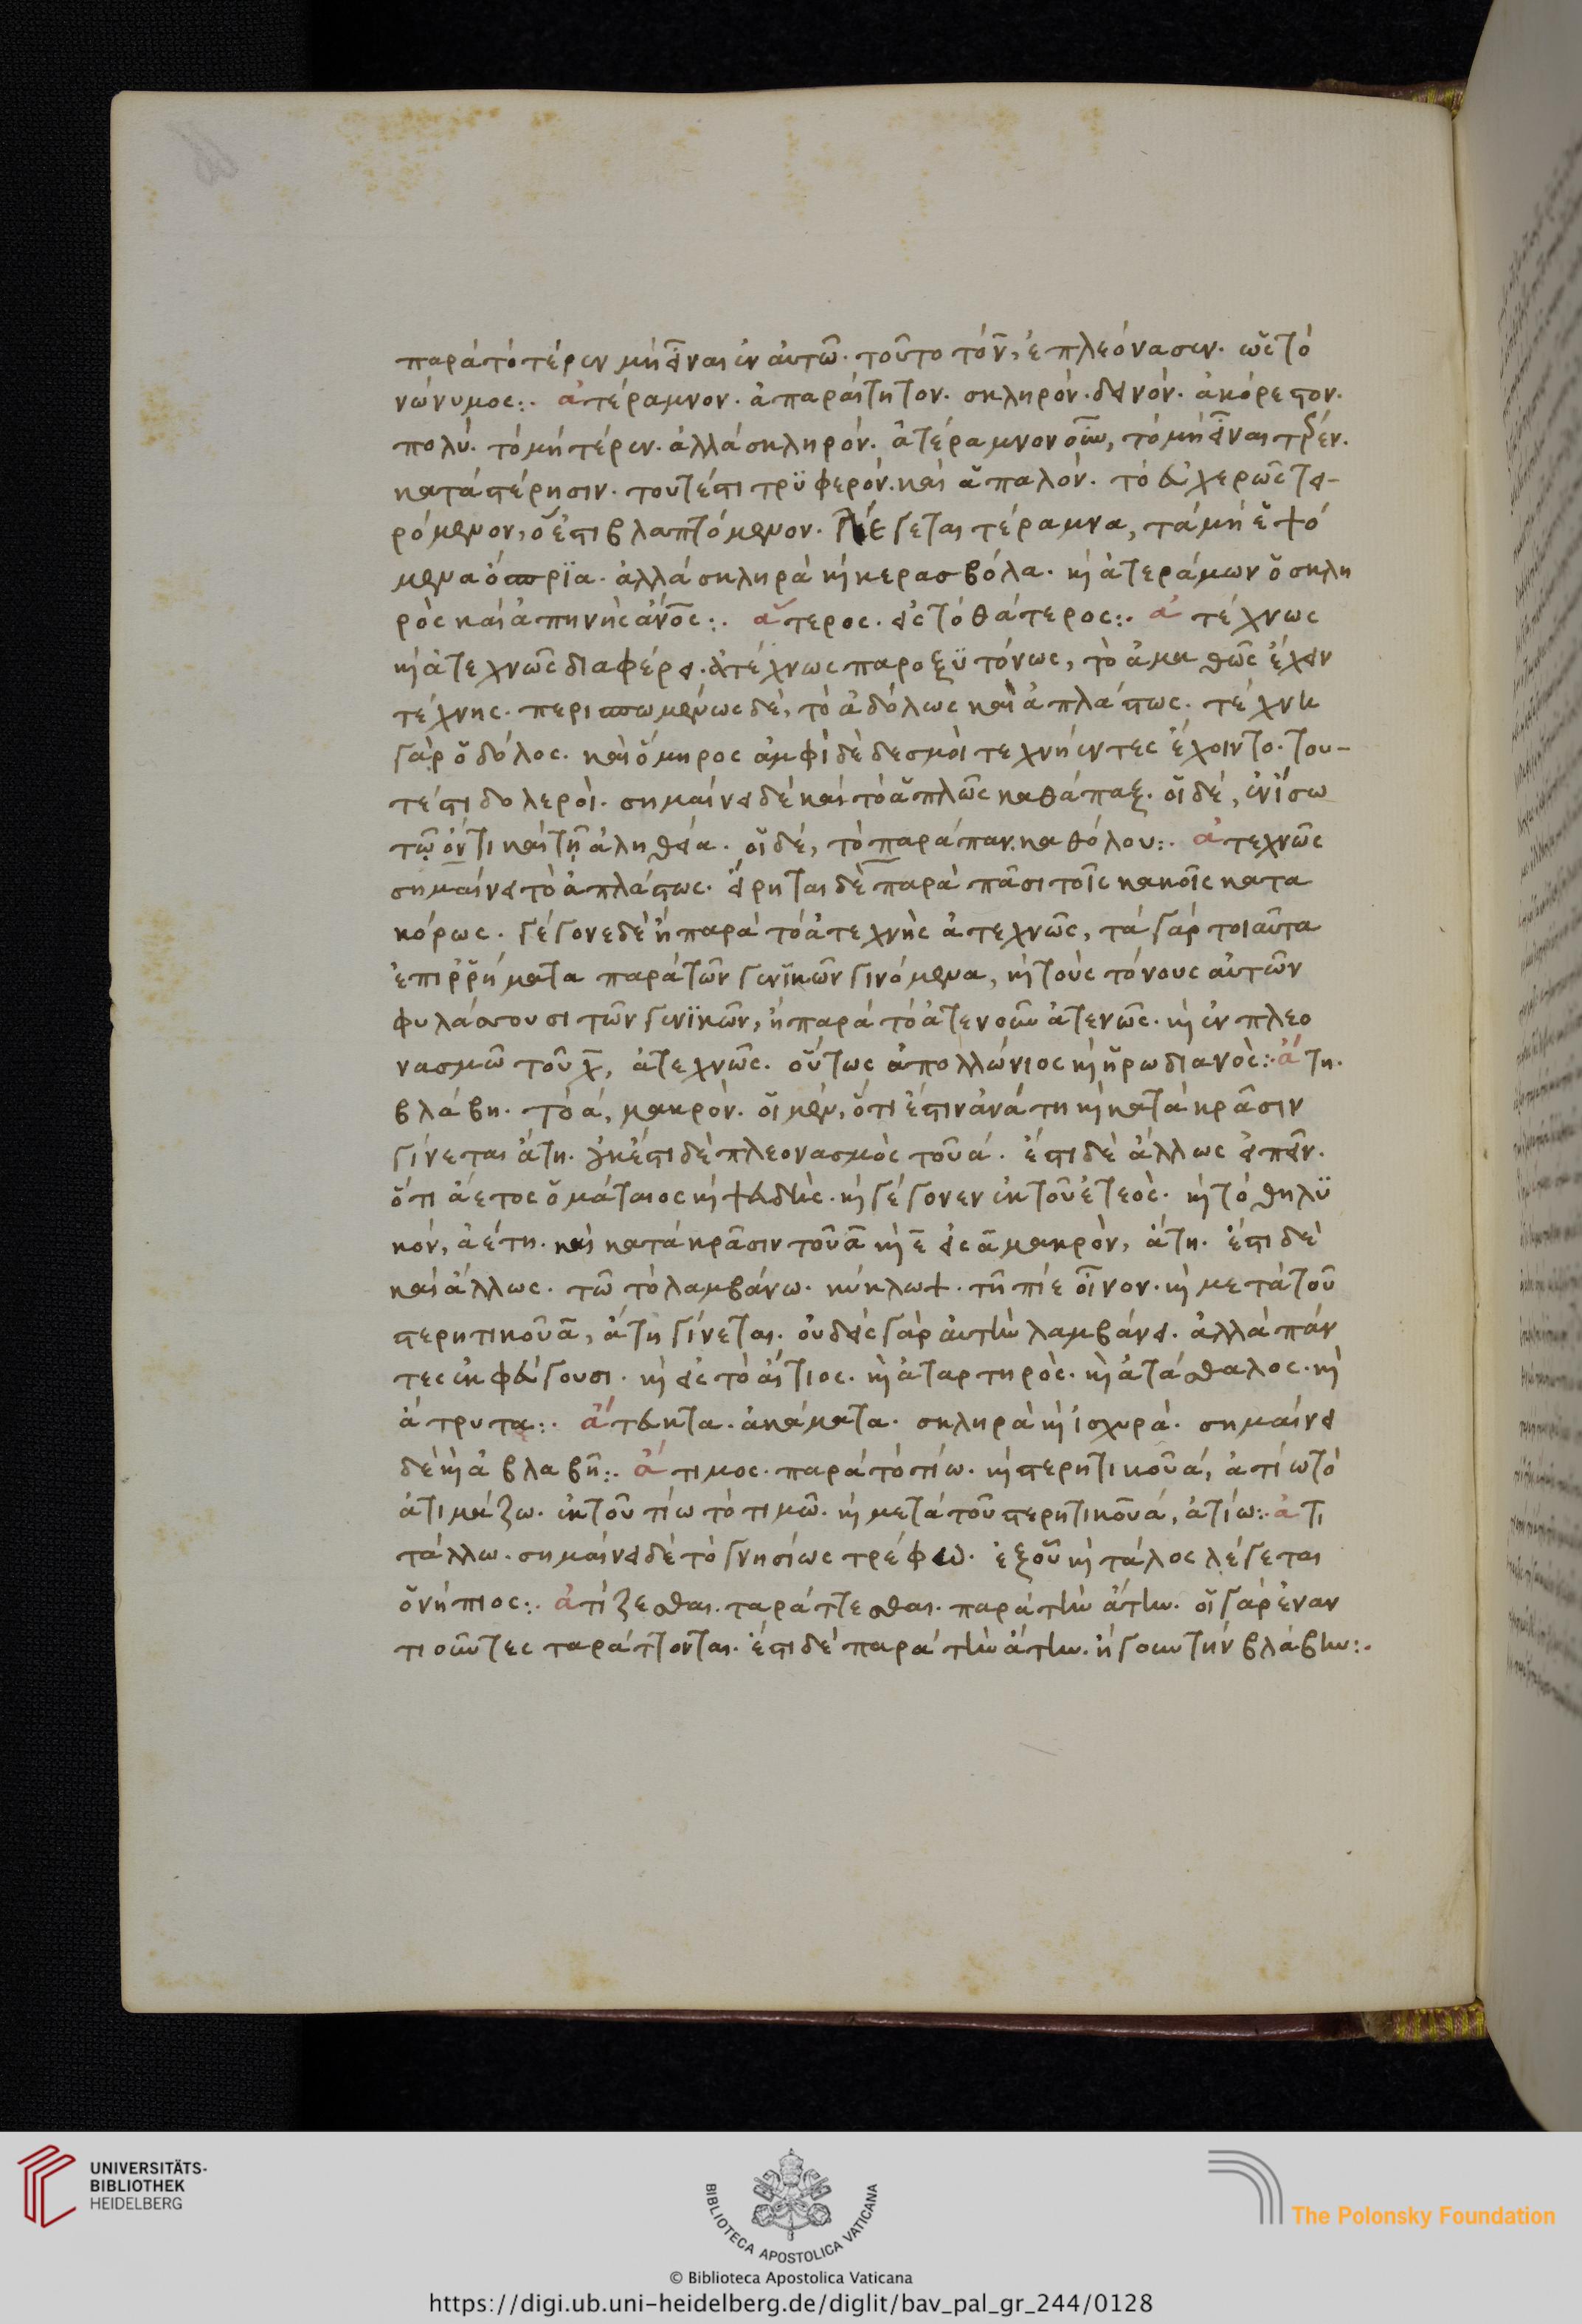 παρὰ τὸ τέρεν μὴ εἶναι ἐν αὐτῶ· τοῦτο τὸ ν̄, ἐπλεόνασεν· ὡς τὸ
νώνυμος:· ἀτέραμνον· ἀπαραίτητον· σκληρόν· δεινόν· ἀκόρεστον·
πολύ· τὸ μὴ τέρεν· ἀλλὰ σκληρόν· ἀτέραμνον οὖν, τὸ μὴ εἶναι τέρεν·
κατὰ στέρησιν· τουτέστι τρϋφερόν· καὶ ἁπαλόν· τὸ εὐχερῶς τει-
ρόμενον, ὅ ἐστι βλαπτόμενον· λέγεται τέραμνα, τὰ μὴ ἑψό
μενα ὄσπρϊα· ἀλλὰ σκληρὰ κὶ κερασβόλα· κὶ ἀτεράμων ὁ σκλη
ρὸς καὶ ἀπηνὴς ἄνος:· ἅτερος· εἰς τὸ θάτερος:· ἀτέχνως
κὶ ἀτεχνῶς διαφέρει· ἀτέχνως παροξϋτόνως, τὸ ἀμαθῶς ἔχειν
τέχνης· περισπωμένως δὲ, τὸ ἀδόλως καὶ ἀπλάστως· τέχνη
γὰρ ὁ δόλος· καὶ ὅμηρος ἀμφὶ δὲ δεσμοὶ τεχνήεντες ἔχοιντο· του-
τέστι δολεροί· σημαίνει δὲ καὶ τὸ ἁπλῶς καθάπαξ· οἱ δὲ, ἐν ἴσω
τῶ ὄντι καὶ τῆ ἀληθεία· οἱ δὲ, τὸ παράπαν· καθόλου:· ἀτεχνῶς
σημαίνει τὸ ἀπλάστως· εἴρηται δὲ παρὰ πᾶσι τοῖς κακοῖς κατα
κόρως· γέγονε δὲ ἢ παρὰ τὸ ἀτεχνὴς ἀτεχνῶς, τὰ γὰρ τοιαῦτα
ἐπιῤῥήματα παρὰ τῶν γενϊκῶν γινόμενα, κὶ τοὺς τόνους αὐτῶν
φυλάσσουσι τῶν γενϊκῶν, ἢ παρὰ τὸ ἀτενοῦς ἀτενῶς· κὶ ἐν πλεο
νασμῶ τοῦ χ̄, ἀτεχνῶς· οὕτως ἀπολλώνιος κὶ ἡρωδιανὸς:· ἄτη·
βλάβη· τὸ ά, μακρὸν· οἱ μὲν, ὅτι ἐστὶν ἀνάτη κὶ κατὰ κρᾶσιν
γίνεται ἄτη· οὐκ ἔστι δὲ πλεονασμὸς τοῦ ά· ἔστι δὲ ἄλλως εἰπεῖν·
ὅτι ἄετος ὁ μάταιος κὶ ψευδὴς· κὶ γέγονεν ἐκ τοῦ ἐτεὸς· κὶ τὸ θηλϋ
κόν, ἀέτη· καὶ κατὰ κρᾶσιν τοῦ ᾱ κὶ ε̄ εἰς ᾱ μακρὸν, ἄτη· ἔστι δὲ
καὶ ἄλλως· τῶ τὸ λαμβάνω· κύκλωψ· τῆ πίε οἶνον· κὶ μετὰ τοῦ
στερητικοῦ ᾱ, ἄτη γίνεται· οὐδεὶς γὰρ αὐτὴν λαμβάνει· ἀλλὰ πάν
τες ἐκφεύγουσι· κὶ εἰς τὸ αἴτιος· κὶ ἀταρτηρὸς· κὶ ἀτάσθαλος· κὶ
ἄτρυτα:· ἄτευκτα· ἀκάματα· σκληρὰ κὶ ἰσχυρὰ· σημαίνει
δὲ κὶ ἀβλαβῆ:· ἄτιμος· παρὰ τὸ τίω· κὶ στερητικοῦ ά, ἀτίω τὸ
ἀτιμάζω· ἐκ τοῦ τίω τὸ τιμῶ· κὶ μετὰ τοῦ στερητικοῦ ά, ἀτίω:· ἀτι
τάλλω· σημαίνει δὲ τὸ γνησίως τρέφω· ἐξ οὗ κὶ τάλος λέγεται
ὁ νήπιος:· ἀτίζεσθαι· ταράττεσθαι· παρὰ τὴν ἄτην· οἱ γὰρ ἐναν
τιοῦντες ταράττονται· ἔστι δὲ παρὰ τὴν ἄτην· ἤγουν τὴν βλάβην:·
UNIVERSITÄTS-
BIBLIOTHEK
HEIDELBERG
BIBLIOTECA APOSTOLICA VATICANA
The Polonsky Foundation
© Biblioteca Apostolica Vaticana
https://digi.ub.uni-heidelberg.de/diglit/bav_pal_gr_244/0128